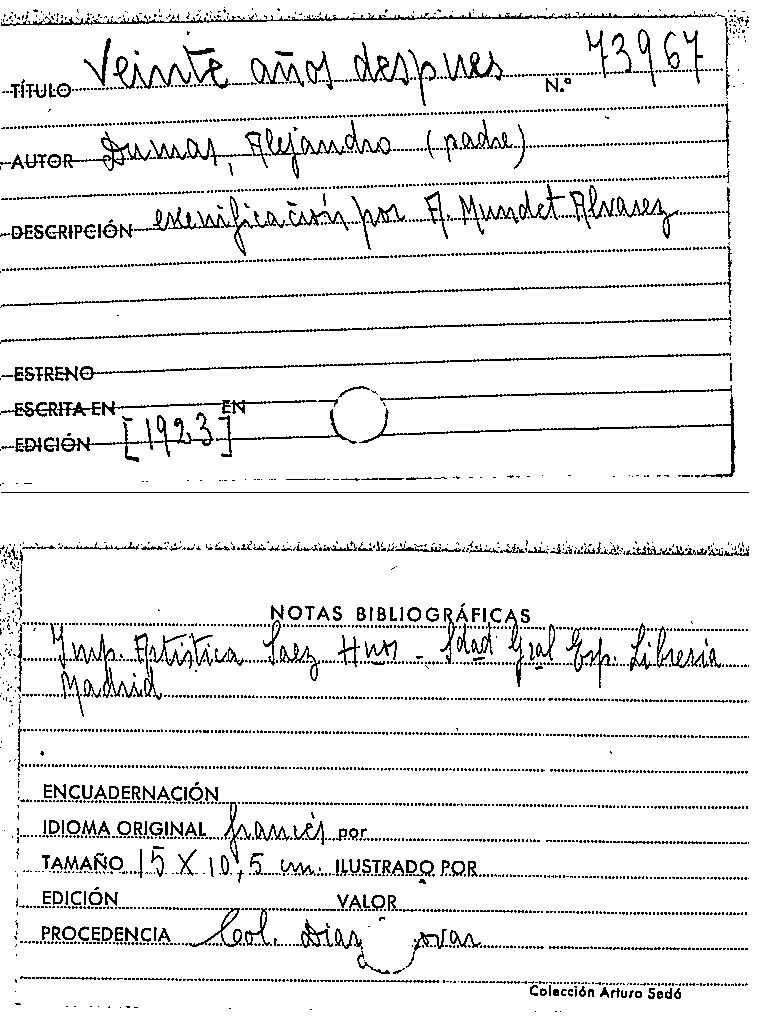 TÍTULO Veinte años despues N.º 73967
AUTOR Dumas, Alejandro (padre)
DESCRIPCIÓN escenificación por A. Mundet Alvarez
ESTRENO
ESCRITA EN EN
EDICIÓN [1923]
NOTAS BIBLIOGRÁFICAS
Imp. Artistica Saez Hnos - Sdad Gral Esp. Libreria
Madrid
ENCUADERNACIÓN
IDIOMA ORIGINAL francés por
TAMAÑO 15 X 10,5 cm. ILUSTRADO POR
EDICIÓN VALOR
PROCEDENCIA Col. Diaz
Colección Arturo Sedó